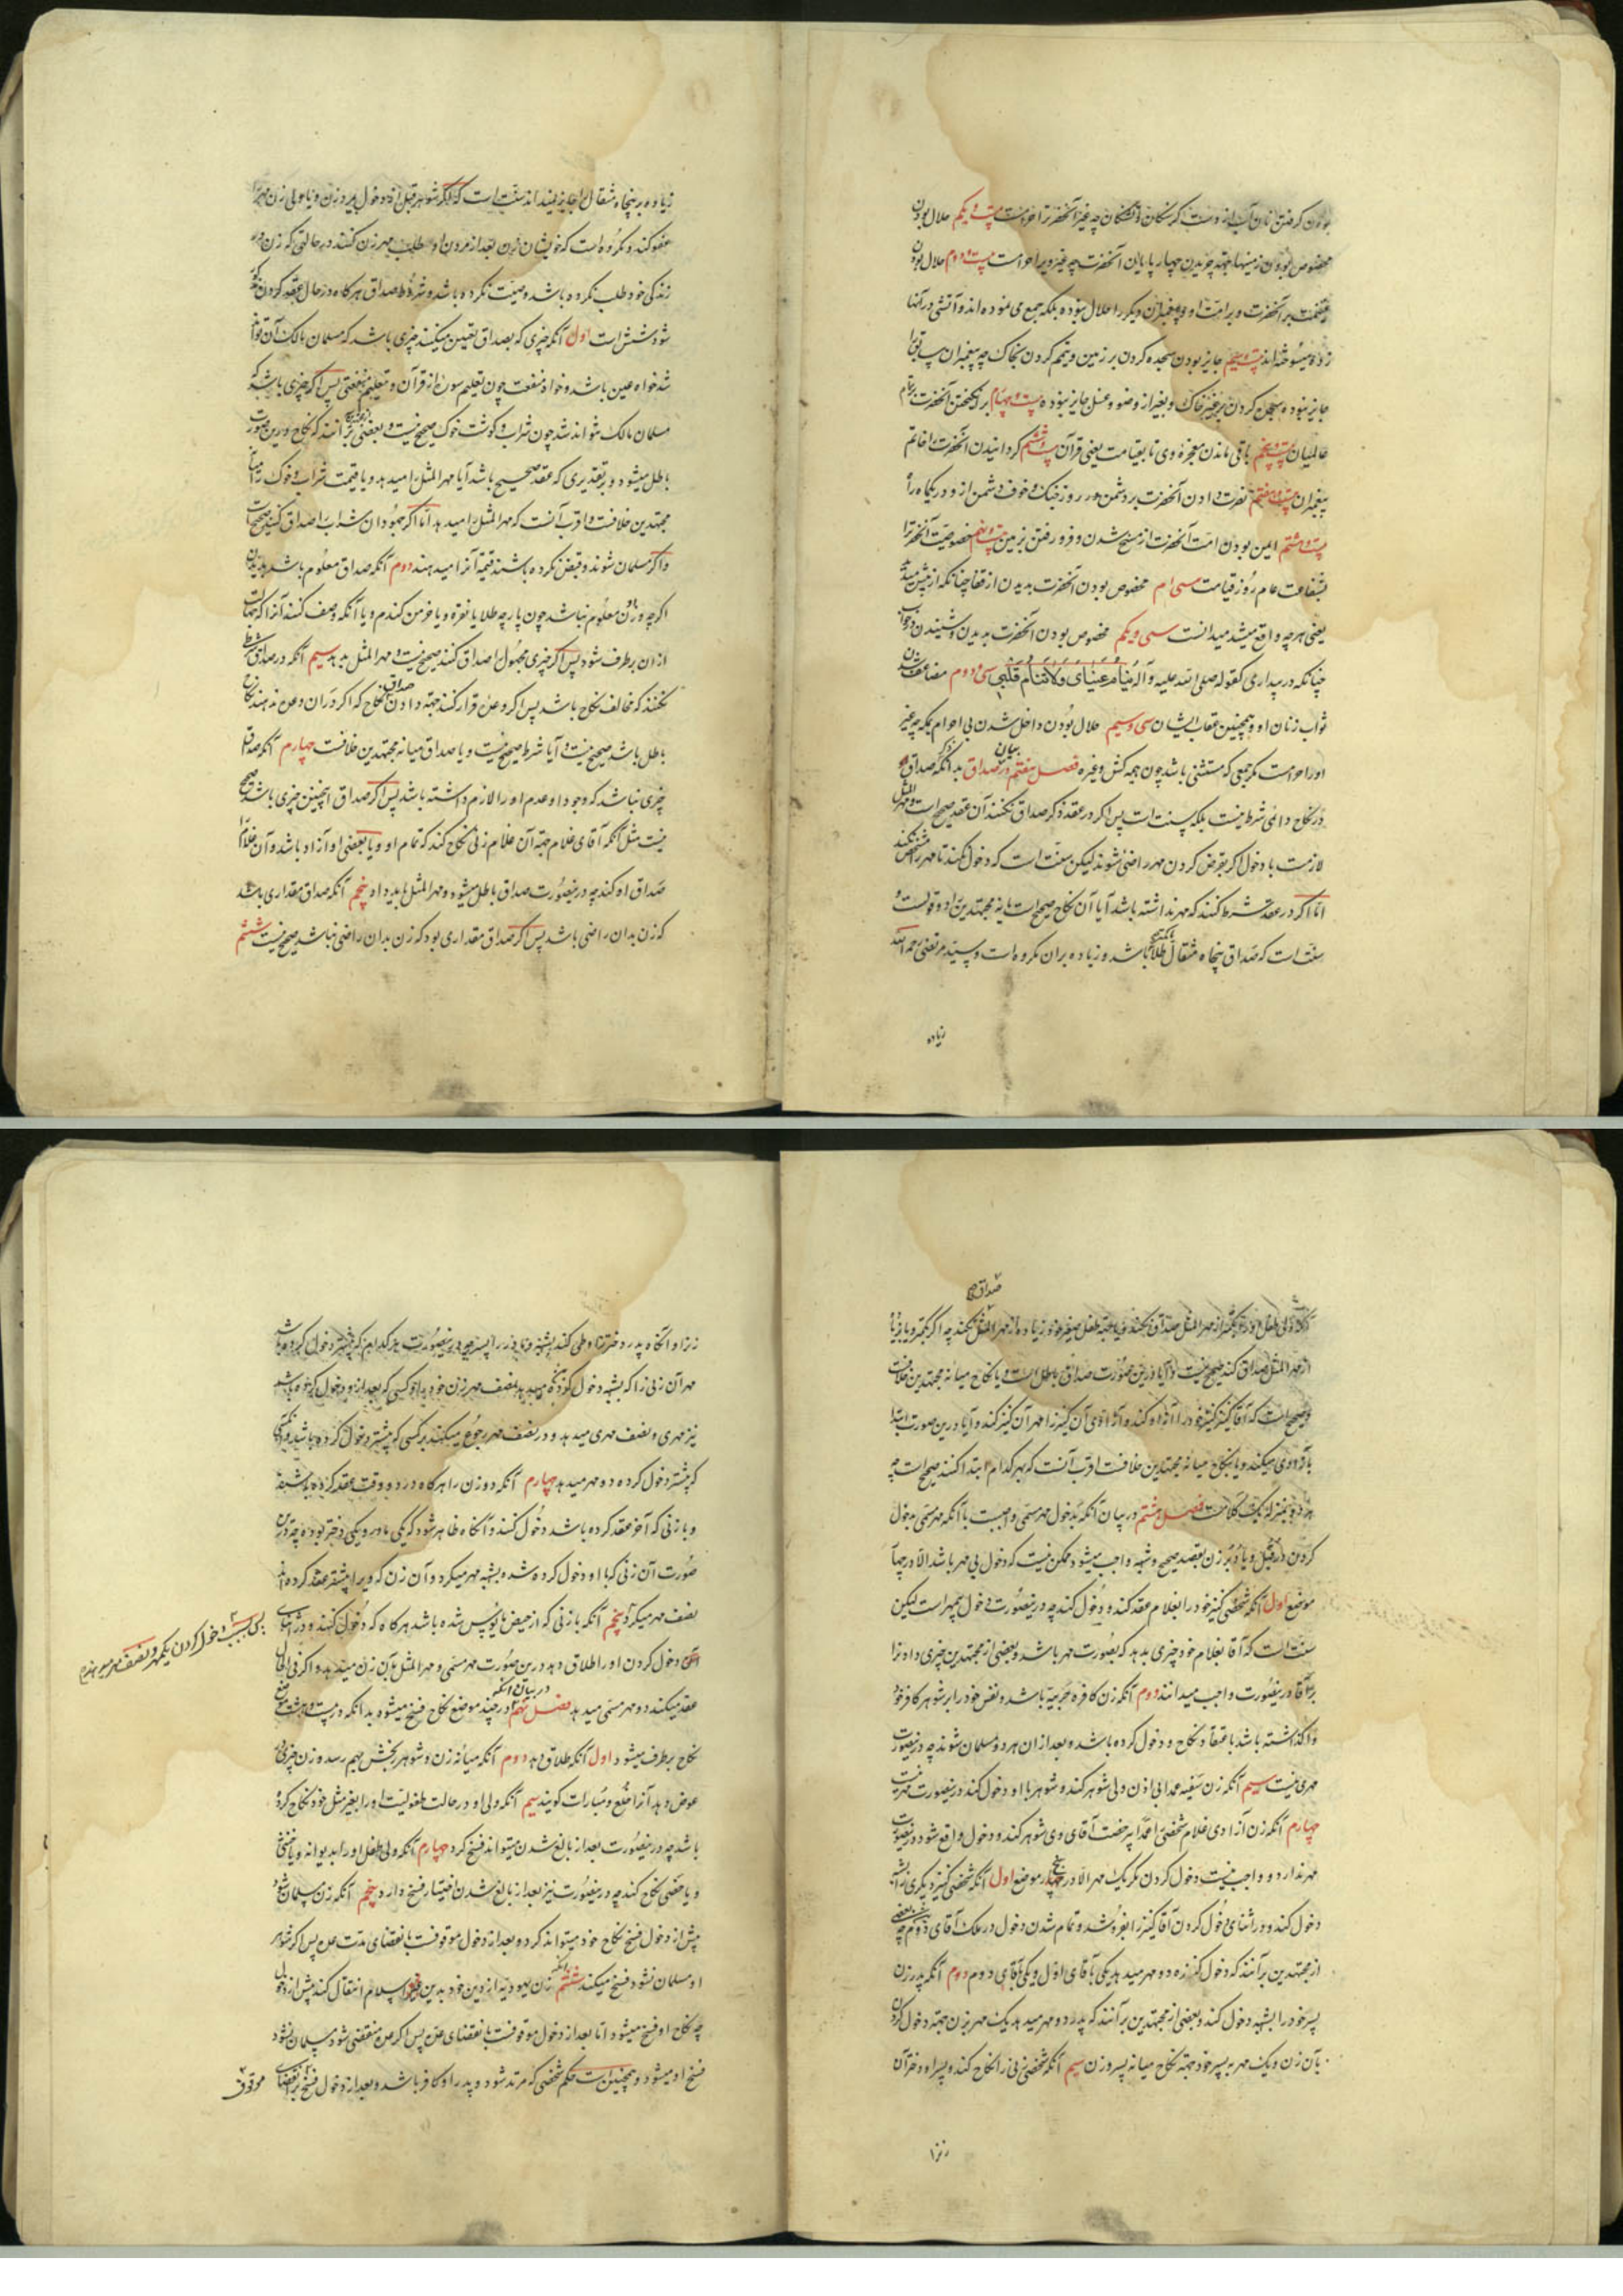 بودن گرفتن نان و آب از دست گرسنگان و تشنگان چه غیر آنحضرت را حرامست بیست و یکم حلال بودن
مخصوص بودن زمینها بجهة چریدن چهارپایان آنحضرت چه غیر ویرا حرامست بیست و دوم حلال بودن
غنیمت بر آنحضرت و بر امت او و پیغمبران دیگر را حلال نبوده بلکه جمع می نموده اند و آتشی در آنها
زده میسوخته اند بیست و سیم جایز بودن سجده کردن بر زمین و تیمم کردن بخاک چه پیغمبران سابق را
جایز نبوده سجده کردن بغیر خاک و بغیر از وضو و غسل جایز نبوده بیست و چهارم برانگیختن آنحضرت بر تمام
عالمیان بیست و پنجم باقی ماندن معجزه وی تا بقیامت یعنی قرآن بیست و ششم گردانیدن آنحضرت را خاتم
پیغمبران بیست و هفتم نصرت دادن آنحضرت بر دشمن در روز جنگ و خوف دشمن از و در یکماه راه
بیست و هشتم ایمن بودن امت آنحضرت از مسخ شدن و فرو رفتن بزمین بیست و نهم مخصوصیت آنحضرت را
بشفاعت عام روز قیامت سی ام مخصوص بودن آنحضرت بدیدن از قفا چنانکه از پیش میدید
یعنی هرچه واقع میشد میدانست سی و یکم مخصوص بودن آنحضرت بدیدن و شنیدن در خواب
چنانکه در بیداری کقوله صلی الله علیه و آله ینام عینای ولا ینام قلبی سی و دوم مضاعف شدن
ثواب زنان او و همچنین عقاب ایشان سی و سیم حلال بودن داخل شدن بی احرام بمکه چه غیر
او را حرامست مگر جمعی که مستثنی باشد چون هیمه کش و غیره فصل هفتم در بیان ذکر صداق بدانکه صداق
در نکاح دائمی شرط نیست بلکه سنت است پس اگر در عقد ذکر صداق نکنند آن عقد صحیح است و مهر المثل
لازمست با دخول اگر بفرض کردن مهر راضی نشوند لیکن سنت است که دخول نکند تا مهر را مشخص نکند
اما اگر در عقد شرط کنند که مهر نداشته باشد آیا آن نکاح صحیح است یا نه مجتهدین را دو قولست و
سنت است که صداق پنجاه مثقال طلا باشد و زیاده بر آن مکروه است و سید مرتضی رحمه الله
زیاده
زیاده بر پنجاه مثقال را جایز نمیداند سنت است که اگر شوهر قبل از دخول بمیرد زن و یا ولی زن مهر را
عفو کند و مکروه است که خویشان زن بعد از مردن او طلب مهر زن کنند در حالتی که زن در
زندگی خود طلب نکرده باشد و وصیت نکرده باشد و شروط صداق هرگاه در حال عقد کردن مذکور
شود شش است اول آنکه چیزی که بصداق تعیین میکنند چیزی باشد که مسلمان مالک آن تواند
شد خواه عین باشد و خواه منفعت چون تعلیم سوره از قرآن و تعلیم صنعتی پس اگر چیزی باشد که
مسلمان مالک نتواند شد چون شراب و گوشت خوک صحیح نیست و بعضی برآنند که نکاح درین صورت
باطل میشود و بر تقدیری که عقد صحیح باشد آیا مهر المثل را میدهد و یا قیمت شراب و خوک را میانه
مجتهدین خلافست و اقرب آنست که مهر المثل را میدهد اما اگر جهودان شراب را صداق کنند صحیح است
و اگر مسلمان شوند و قبض نکرده باشند قیمة آنرا میدهند دوم آنکه صداق معلوم باشد بدیدن
اگرچه وزن معلوم نباشد چون پارچه طلا یا نقره و یا خرمن گندم و یا آنکه وصف کنند آنرا که جهالت
از آن برطرف شود پس اگر چیزی مجهول را صداق کنند صحیح نیست و مهر المثل بدهد سیم آنکه در صداق شرط
نکنند که مخالف نکاح باشد پس اگر وعده قرار کنند جهة دادن صداق نکاح که اگر در آن وعده ندهند نکاح
باطل باشد صحیح نیست و آیا شرط صحیح نیست و یا صداق میانه مجتهدین خلافست چهارم آنکه صداق
چیزی نباشد که وجود او عدم او را لازم داشته باشد پس اگر صداق اینچنین چیزی باشد صحیح
نیست مثل آنکه آقای غلام جهة آن غلام زنی نکاح کند که تمام او و یا بعضی او آزاد باشد و آن غلام را
صداق او کند چه درینصورت صداق باطل میشود و مهر المثل باید داد پنجم آنکه صداق مقداری باشد
که زن بدان راضی باشد پس اگر صداق مقداری بود که زن بدان راضی نباشد صحیح نیست ششم
صداق
آنکه ولی طفل او را بکمتر از مهر المثل صداق نکند و یا جهة طفل صغیر خود زیاده از مهر المثل نکند چه اگر بکمتر و یا بزیاده
از مهر المثل صداق کند صحیح نیست و آیا درین صورت صداق باطل است و یا نکاح میانه مجتهدین خلافست
و صحیح است که آقا کنیز خود را آزاد کند و آزادی آن کنیز را مهر آن کنیز کند و آیا درین صورت ابتدا
بآزادی میکند و یا بنکاح میانه مجتهدین خلافست اقرب آنست که بهر کدام ابتدا کنند صحیح است چه
هر دو بمنزله یک کلامست فصل هشتم در بیان آنکه بدخول مهر مسمی واجبست بدانکه مهر مسمی بدخول
کردن در قبل و یا دبر زن بقصد صحیح و شبهه واجب میشود و ممکن نیست که دخول بی مهر باشد الا در چهار
موضع اول آنکه شخصی کنیز خود را بغلام عقد کند و دخول کند چه درینصورت دخول بیمهر است لیکن
سنت است که آقا بغلام خود چیزی بدهد که بصورت مهر باشد و بعضی از مجتهدین چیزی دادن را
بر آقا درینصورت واجب میدانند دوم آنکه زن کافره حربیه باشد و نفس خود را بر شوهر کافر خود
واگذاشته باشد باعتقاد نکاح و دخول کرده باشد و بعد از آن هر دو مسلمان شوند چه درینصورت
مهری نیست سیم آنکه زن سفیهه عمدا بی اذن ولی شوهر کند و شوهر با او دخول کند درینصورت مهر نیست
چهارم آنکه زن آزادی غلام شخصی را عمدا بی رخصت آقای وی شوهر کند و دخول واقع شود درینصورت
مهر ندارد و واجب نیست دخول کردن مگر یک مهر الا در پنج موضع اول آنکه شخصی کنیز دیگری را بشبهه
دخول کند و در اثنای دخول کردن آقا کنیز را بفروشد و تمام شدن دخول در ملک آقای دوم چه بعضی
از مجتهدین برآنند که دخول کننده دو مهر میدهد یکی بآقای اول و یکی بآقای دوم دوم آنکه پدر زن
پسر خود را بشبهه دخول کند و بعضی از مجتهدین برآنند که پدر دو مهر میدهد یک مهر بزن جهة دخول کردن
بآن زن و یک مهر به پسر خود جهة نکاح میانه پسر و زن سیم آنکه شخصی زنی را نکاح کند و پسر او دختر آن
زنرا
زنرا و آنگاه پدر دختر را وطی کند بشبهه و مادر را پسر چه درینصورت هر کدام که پیشتر دخول کرده باشد
مهر آن زنی را که بشبهه دخول کرده میدهد و نصف مهر زن خود به او کسی که بعد از و دخول کرده باشد
نیز مهری و نصف مهری میدهد و در نصف مهر رجوع میکند بر کسی که پیشتر دخول کرده باشد
که پیشتر دخول کرده دو مهر میدهد چهارم آنکه دو زن را هرگاه در دو وقت عقد کرده باشد
و با زنی که آخر عقد کرده باشد دخول کند و آنگاه ظاهر شود که یکی مادر و یکی دختر بوده چه درین
صورت آن زنی که با او دخول کرده شده بشبهه مهر میگیرد و آن زن که ویرا پیشتر عقد کرده اند
نصف مهر میگیرد پنجم آنکه با زنی که از حیض مایوس شده باشد هرگاه که دخول کند و در اثنای
دخول کردن او را طلاق دهد درین صورت مهر مسمی و مهر المثل بآن زن میدهد و اگر فی الحال
پس بسبب دخول کردن یکمهر و نصف مهر میدهد
عقد میکند دو مهر مسمی میدهد فصل نهم در بیان آنکه در چند موضع نکاح فسخ میشود بدانکه در بیست و هشت موضع
نکاح برطرف میشود اول آنکه طلاق دهد دوم آنکه میانه زن و شوهر رنجش بهم رسد و زن چیزی
عوض دهد آنرا خلع و مبارات گویند سیم آنکه ولی او در حالت طفولیت او را بغیر مثل خود نکاح کرده
باشد چه درینصورت بعد از بالغ شدن میتواند فسخ کرد چهارم آنکه ولی طفل او را بدیوانه و یا خنثی
و یا خصی نکاح کند چه درینصورت نیز بعد از بالغ شدن اختیار فسخ دارد پنجم آنکه زن مسلمان شود
پیش از دخول فسخ نکاح خود میتواند کرد و بعد از دخول موقوفست بانقضای مدت عده پس اگر شوهر
او مسلمان نشود فسخ میکند ششم آنکه زن یهودیه از دین خود بدین غیر اسلام انتقال کند پیش از دخول
چه نکاح او فسخ میشود اما بعد از دخول موقوفست بانقضای عده پس اگر عده منقضی شود و مسلمان نشود
فسخ او میشود و همچنین است حکم شخصی که مرتد شود و پدر او کافر باشد و بعد از دخول فسخ بر انقضای
موقوف